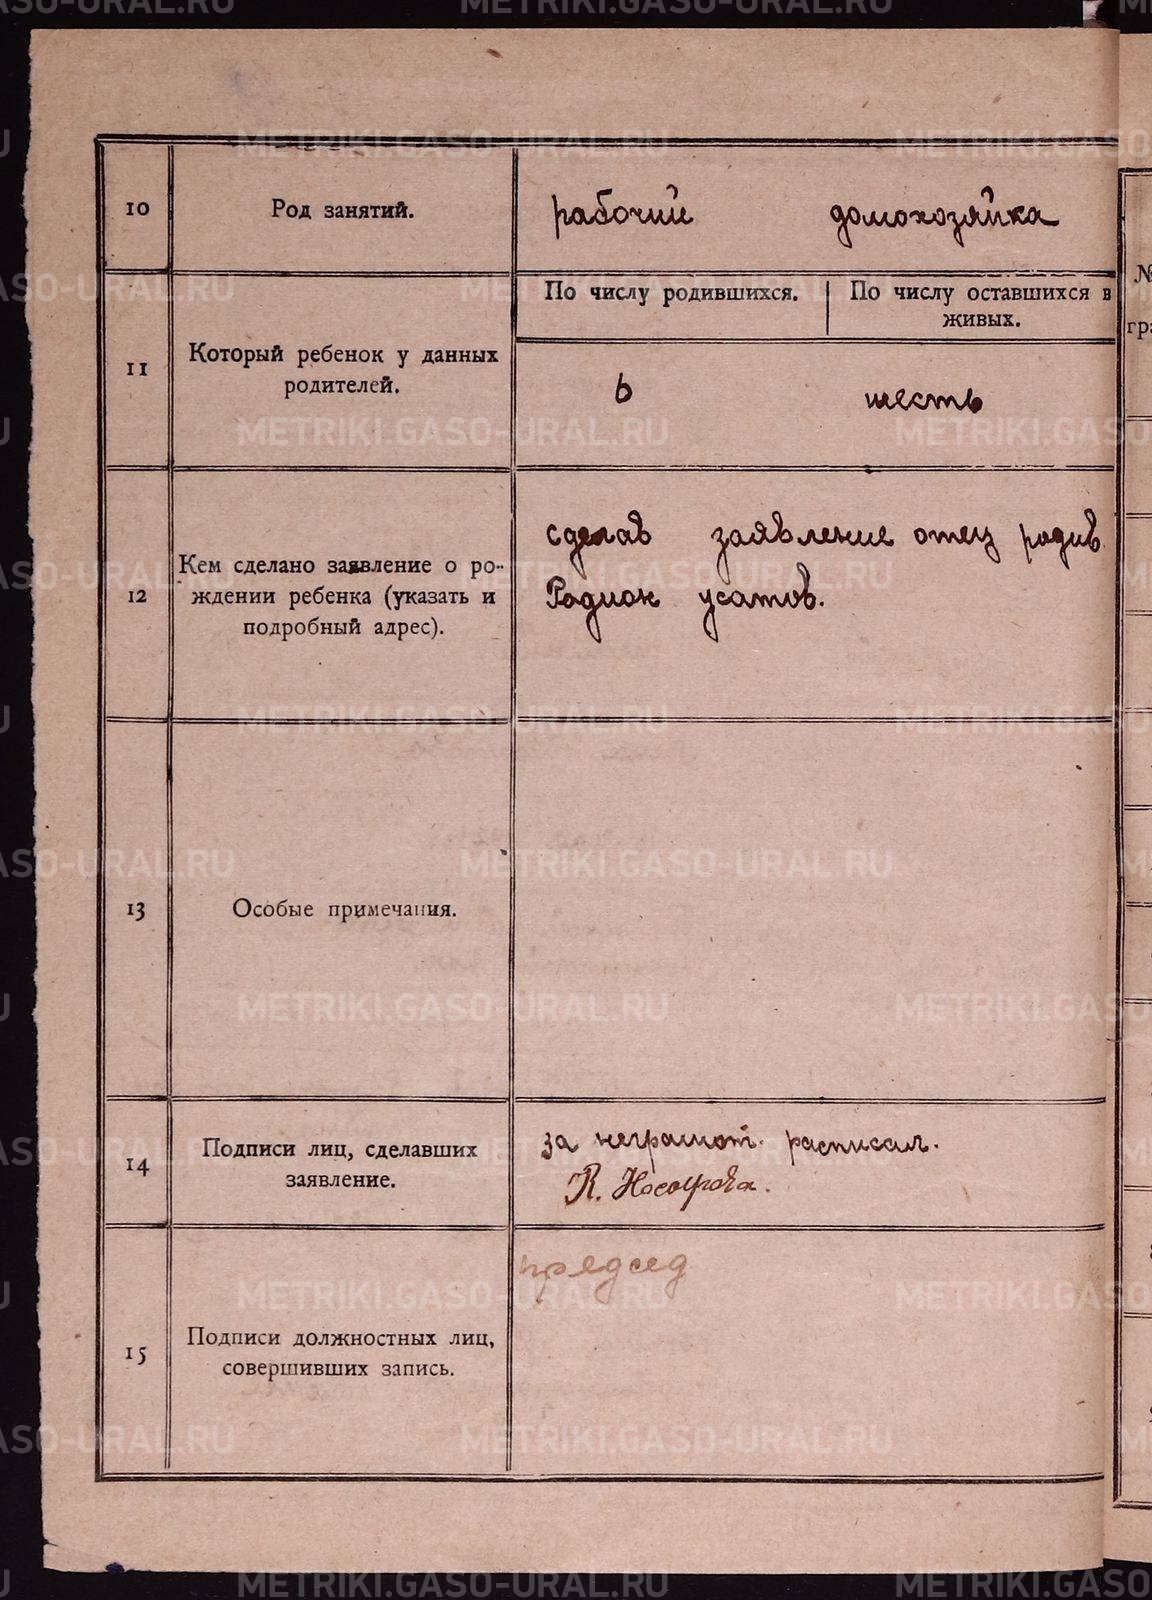 10
Род занятий.
рабочий домохозяйка
11
Который ребенок у данных
родителей.
По числу родившихся.
По числу оставшихся в
живых.
6
шесть
12
Кем сделано заявление о ро-
ждении ребенка (указать и
подробный адрес).
сделав заявление отец родив.
Родион усатов.
13
Особые примечания.
14
Подписи лиц, сделавших
заявление.
за неграмот. расписал.
К.
15
Подписи должностных лиц,
совершивших запись.
председ
№
гра
METRIKI.GASO-URAL.RU